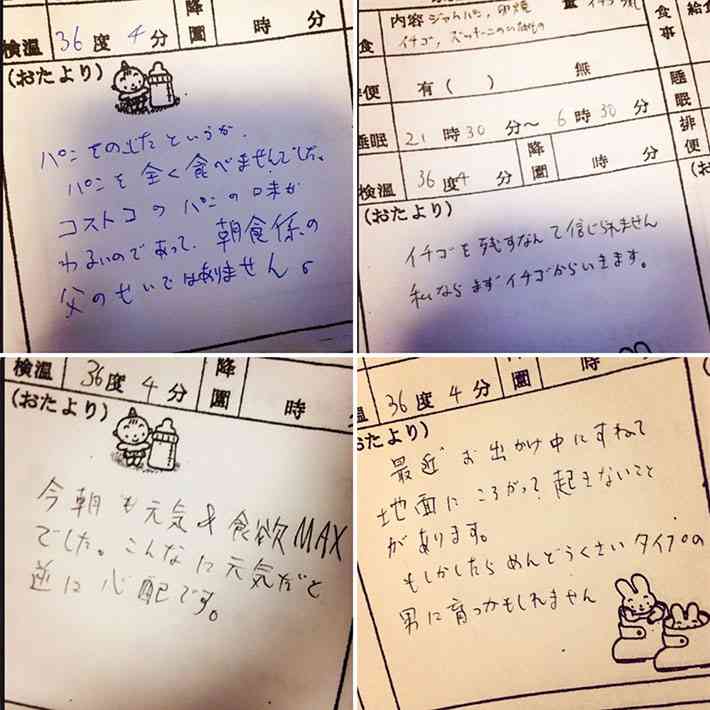 検温 36度 4分 降園 時 分
(おたより)
パンをの
パンを全く食べませんでした。
コストコのパンの味が
わるいのであって、朝食係の
父のせいではありません。
食 内容 量 食事 給食
イチゴ、
便 有( ) 無 睡眠
睡眠 21時30分〜6時30分 排便
検温 36度4分 降園 時 分
(おたより)
イチゴを残すなんて信じられません
私ならまずイチゴからいきます。
検温 36度 4分 降園 時 分
(おたより)
今朝も元気&食欲MAX
でした。こんなに元気だと
逆に心配です。
温 36度 4分 降園 時
おたより)
最近お出かけ中にすねて
地面にころがって起きないこと
があります。
もしかしたらめんどうくさいタイプの
男に育つかもしれません